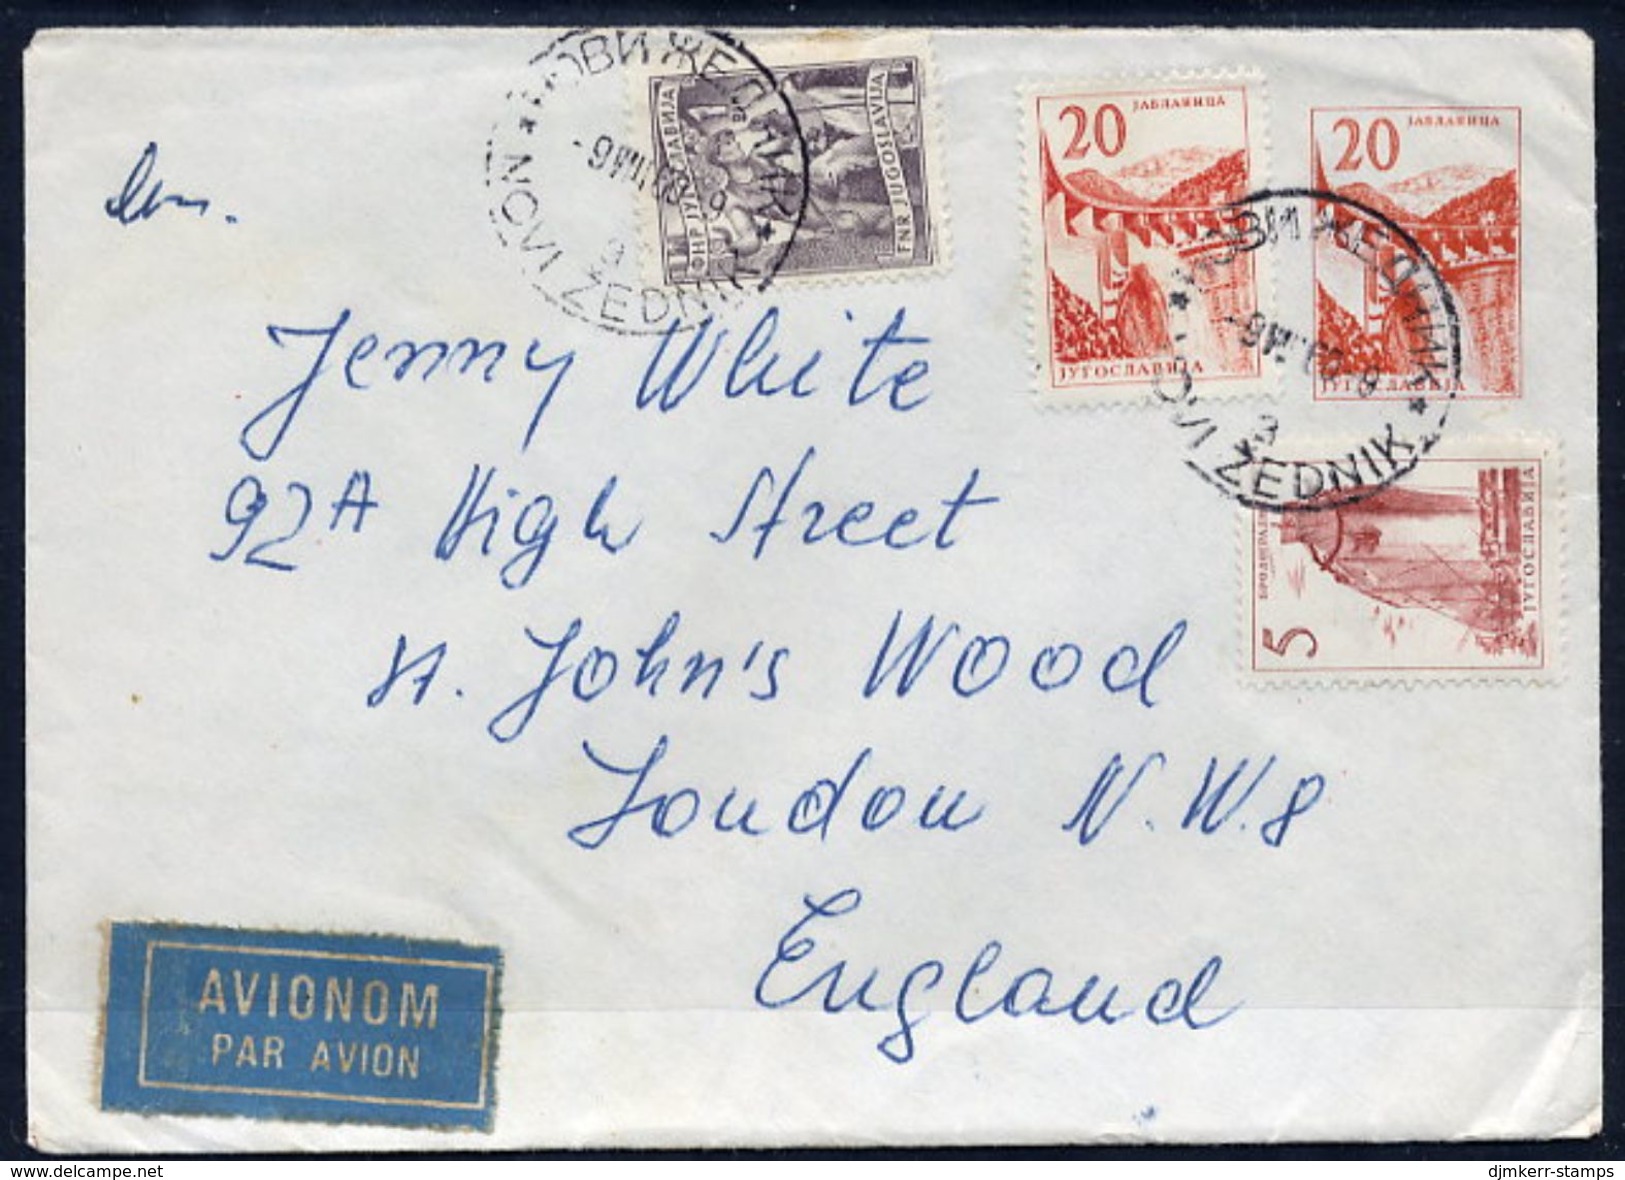 НОВИ ЖЕДНИК
NOVI ŽEDNIK
ФНР ЈУГОСЛАВИЈА
FNR JUGOSLAVIJA
20
ЈАБЛАНИЦА
ЈУГОСЛАВИЈА
20
ЈАБЛАНИЦА
ЈУГОСЛАВИЈА
НОВИ ЖЕДНИК
NOVI ŽEDNIK
5
ЈУГОСЛАВИЈА
Jenny White
92A High Street
St. John's Wood
London N.W.8
England
AVIONOM
PAR AVION
www.delcampe.net
djmkerr-stamps